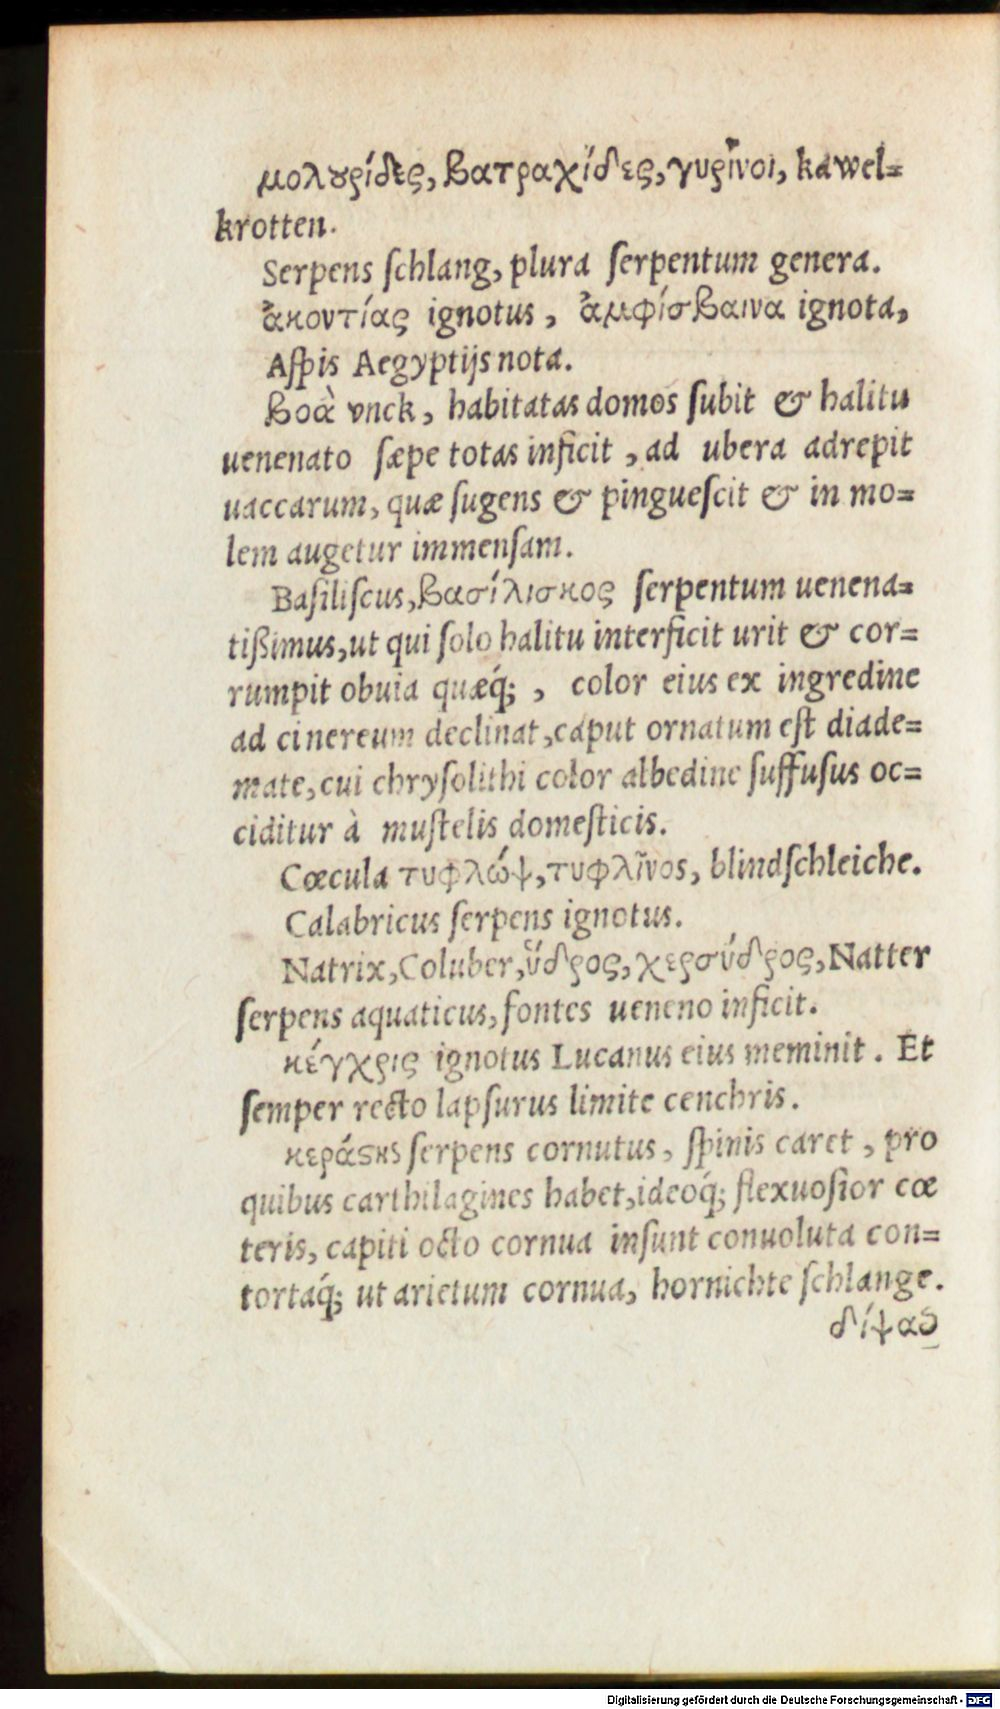 μολȣρίδες, βατραχίδες, γυρῖνοι, kawel=
krotten.
Serpens ſchlang, plura ſerpentum genera.
ἀκοντίας ignotus, ἀμφίσβαινα ignota,
Aſpis Aegyptijs nota.
βοὰ vnck, habitatas domos ſubit & halitu
uenenato ſæpe totas inficit, ad ubera adrepit
uaccarum, quæ ſugens & pingueſcit & in mo=
lem augetur immenſam.
Baſiliſcus, βασίλισκος ſerpentum uenena=
tißimus, ut qui ſolo halitu interficit urit & cor=
rumpit obuia quæq́;, color eius ex ingredine
ad cinereum declinat, caput ornatum eſt diade=
mate, cui chryſolithi color albedine ſuffuſus oc=
ciditur à muſtelis domeſticis.
Cœcula τυφλώψ, τυφλῖνος, blindſchleiche.
Calabricus ſerpens ignotus.
Natrix, Coluber, ὕδρος, χερσύδρος, Natter
ſerpens aquaticus, fontes ueneno inficit.
κέγχρις ignotus Lucanus eius meminit. Et
ſemper recto lapſurus limite cenchris.
κεράϛης ſerpens cornutus, ſpinis caret, pro
quibus carthilagines habet, ideoq́; flexuoſior cœ
teris, capiti octo cornua inſunt conuoluta con=
tortaq́; ut arietum cornua, hornichte ſchlange.
δίψας
Digitalisierung gefördert durch die Deutsche Forschungsgemeinschaft - DFG